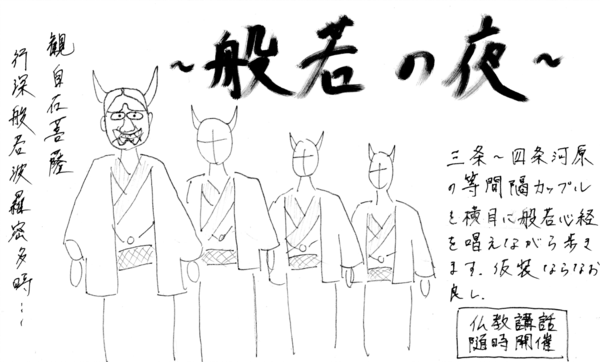 ～般若の夜～
観自在菩薩
行深般若波羅密多時…
三条～四条河原
の等間隔カップル
を横目に般若心経
を唱えながら歩き
ます。仮装ならなお
良し。
仏教講話
随時開催